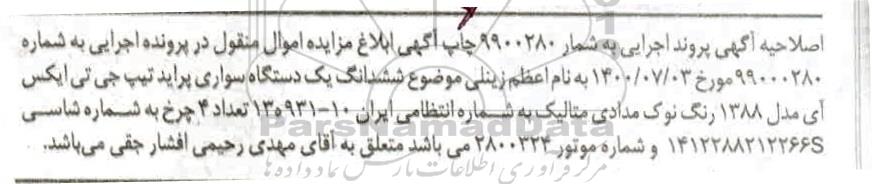 اصلاحیه آگهی پروند اجرایی به شمار ۹۹۰۰۲۸۰ چاپ آگهی ابلاغ مزایده اموال منقول در پرونده اجرایی به شماره
۹۹۰۰۰۲۸۰ مورخ ۱۴۰۰/۰۷/۰۳ به نام اعظم زینلی موضوع ششدانگ یک دستگاه سواری پراید تیپ جی تی ایکس
آی مدل ۱۳۸۸ رنگ نوک مدادی متالیک به شماره انتظامی ایران ۱۰-۹۳۱ه۱۳ تعداد ۴ چرخ به شماره شاسی
S۱۴۱۲۲۸۸۲۱۲۲۶۶ و شماره موتور ۲۸۰۰۳۲۴ می باشد متعلق به آقای مهدی رحیمی افشار جقی می‌باشد.
ParsNamadData
مرکز فرآوری اطلاعات پارس نماد داده ها